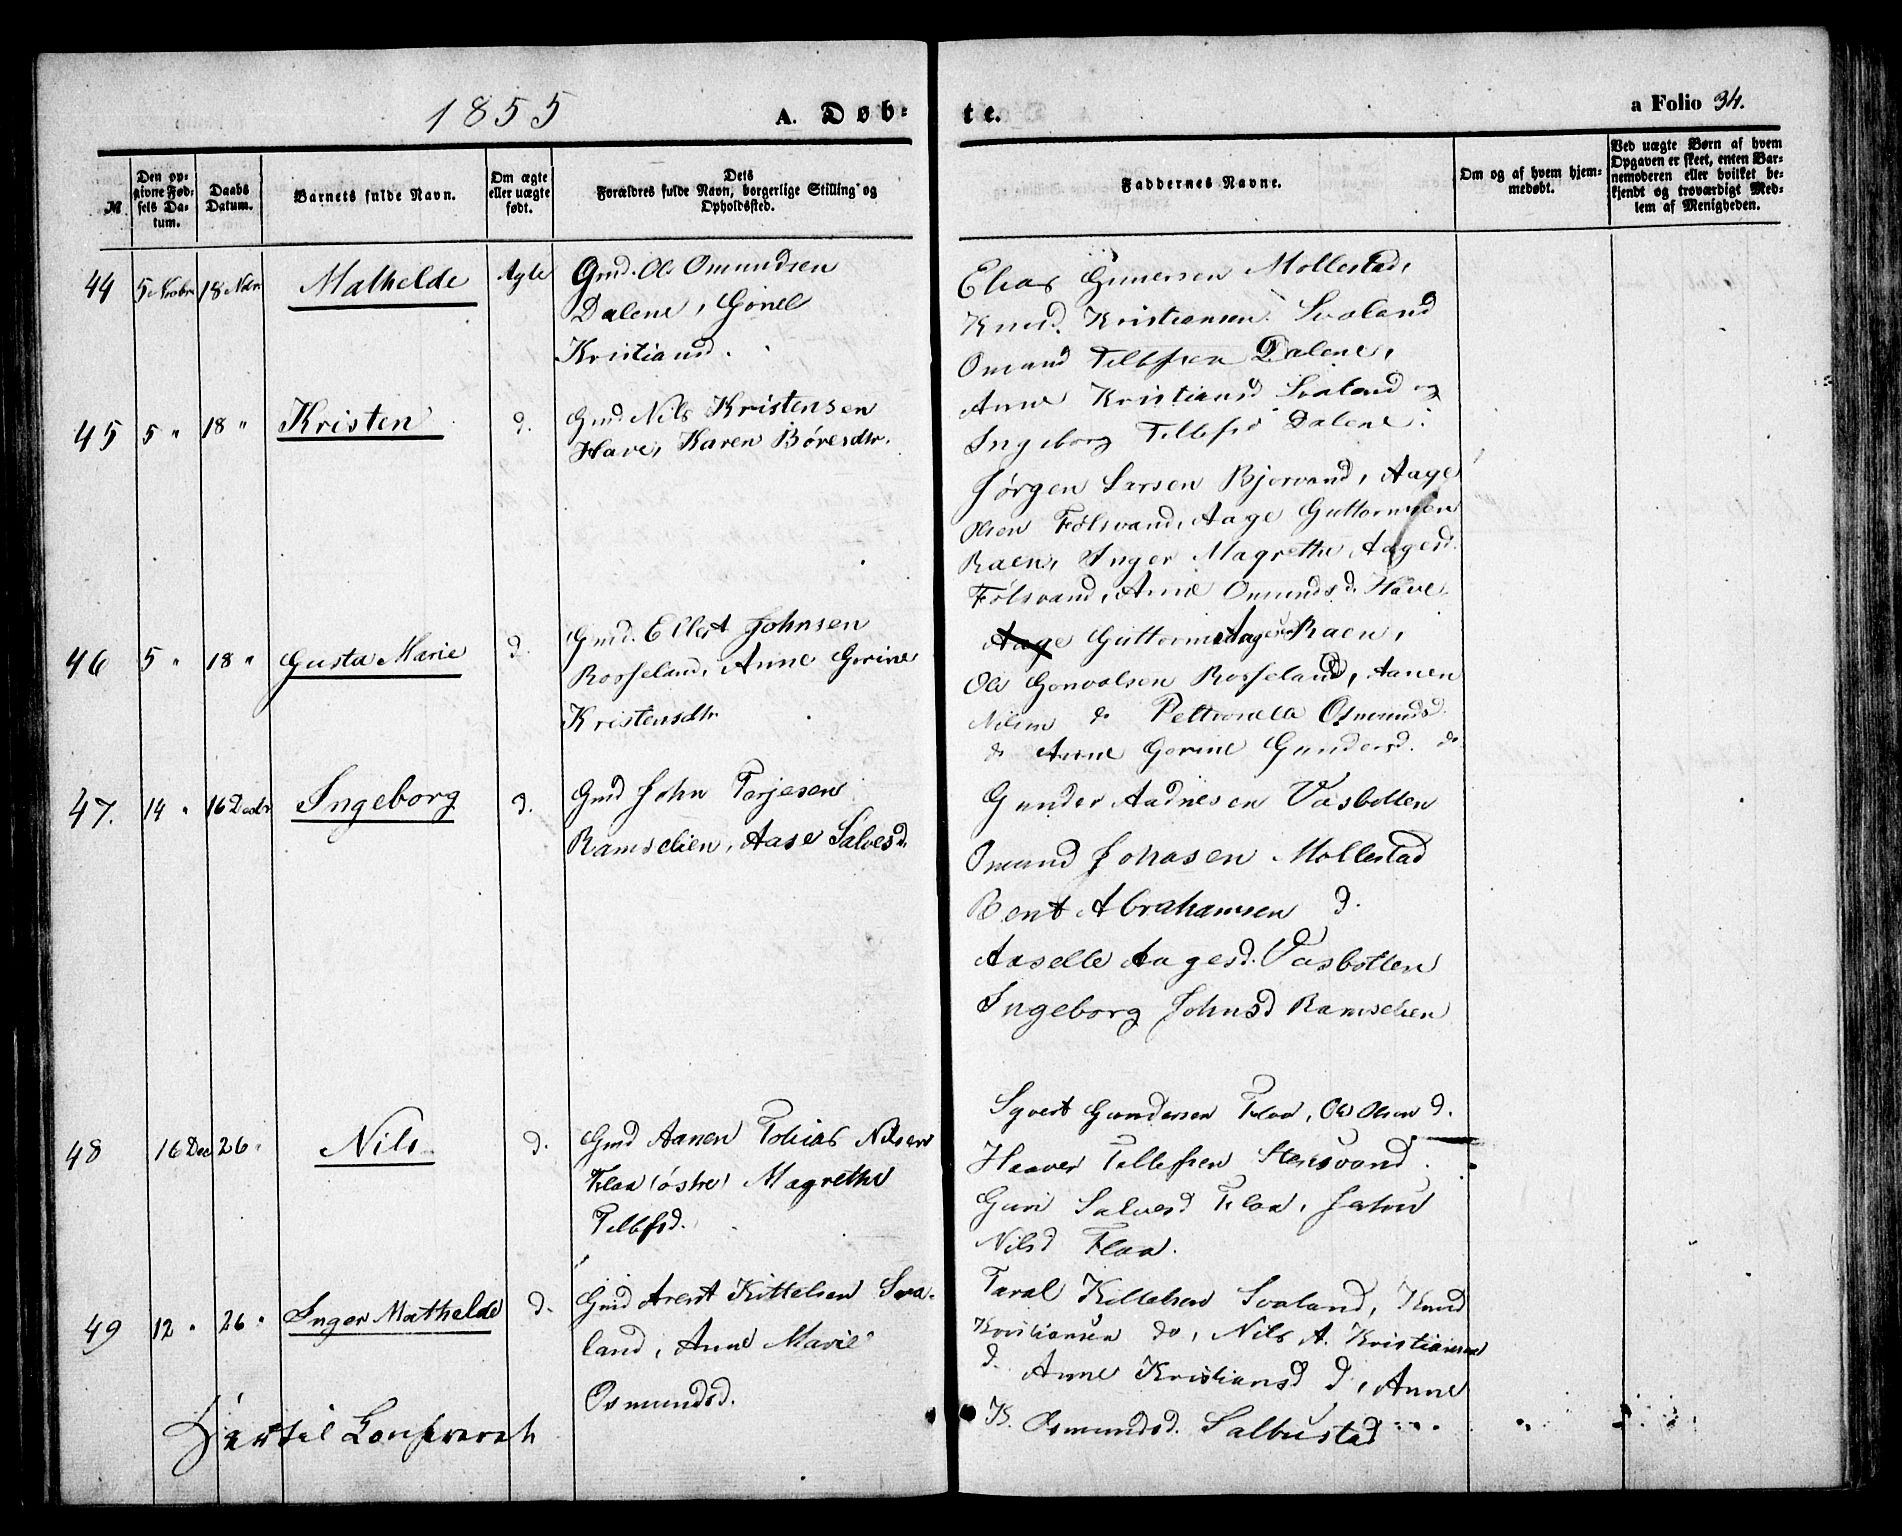 1855
A. Døb-
te.
a Folio 34.
M
Den op-
givne Fød-
sels Da-
tum.
Daabs
Datum.
Barnets fulde Navn.
Om ægte
eller uægte
født.
Dets
Forældres fulde Navn, borgerlige Stilling og
Opholdssted.
Faddernes Navne.
Om og af hvem hjem-
medøbt.
Ved uægte Børn af hvem
Opgaven er skeet, enten Bar-
nemoderen eller hvilket be-
kjendt og troværdigt Med-
lem af Menigheden.
44 5 Novbr 18 Novbr Mathelde Ægte Gmd. Ole Omundsen
Dalene, Gonel
Kristiansd.
Elias Gunersen Mollestad,
Knud Kristiansen Svaland
Omund Tellefsen Dalene,
Anne Kristiansd Svaland og
Ingeborg Tellefsd Dalene.
45 5 " 18 " Kristen d. Gmd. Nils Kristensen
Have, Karen Børesdtr.
Jørgen Larsen Bjorvand, Aage
Olsen Følsvand, Aage Guttormsen
Raen, Inger Magrethe Aagesd.
Følsvand, Anne Omundsd. Have.
46 5 " 18 " Gusta Marie d. Gmd. Ellert Johnsen
Rosseland, Anne Gorine
Kristensdtr.
Aage Guttorm Aages Raen,
Ole Gonvalsen Rosseland, Aanen
Nilsen do Pettronella Osmundsd.
do Anne Gorine Gundersd. do
47. 14 " 16 Decbr Ingeborg d. Gmd John Terjesen
Ramselien, Aase Salvesd.
Gunder Aadnesen Vasbotten
Omund Johnsen Mollestad
Bent Abrahamsen d.
Aaselle Aagesd. Vasbotten
Ingeborg Johnsd Ramselien
48 16 Dec 26 " Nils d. Gmd Aanen Tobias Nilsen
Flaa (østre) Magrethe
Tellefsd.
Syvert Gundersen Flaa, Ole Olsen d.
Haaver Tellefsen Stensvand.
Guri Salvesd Flaa,
Nilsd Flaa.
49 12 " 26 " Inger Mathelde d. Gmd Arent Kittelsen Sva-
land, Anne Marie
Osmundsd.
Taral Kittelsen Svaland, Knud
Kristiansen do, Nils A. Kristiansen
d. Anne Kristiansd d, Anne
K. Osmundsd. Salbustad
Hertil Konfereret